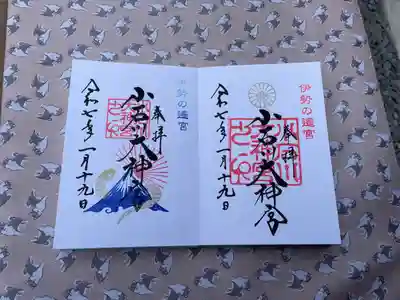 伊勢の遙宮
奉拝
小石川大神宮
令和七年一月十九日
伊勢の遙宮
奉拝
小石川大神宮
令和七年一月十九日